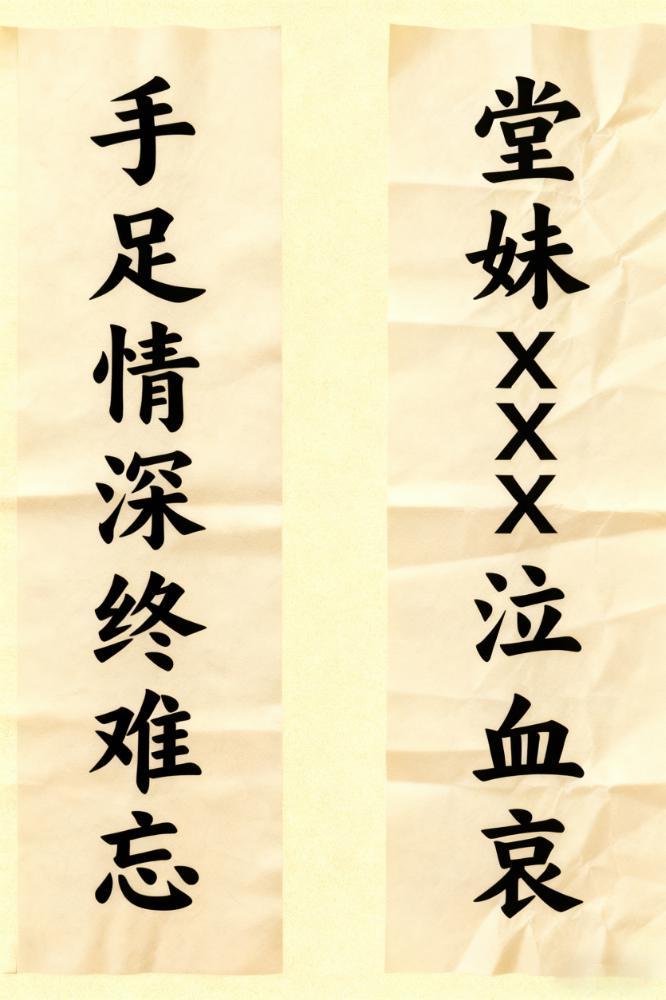 堂妹XXX泣血哀
手足情深终难忘